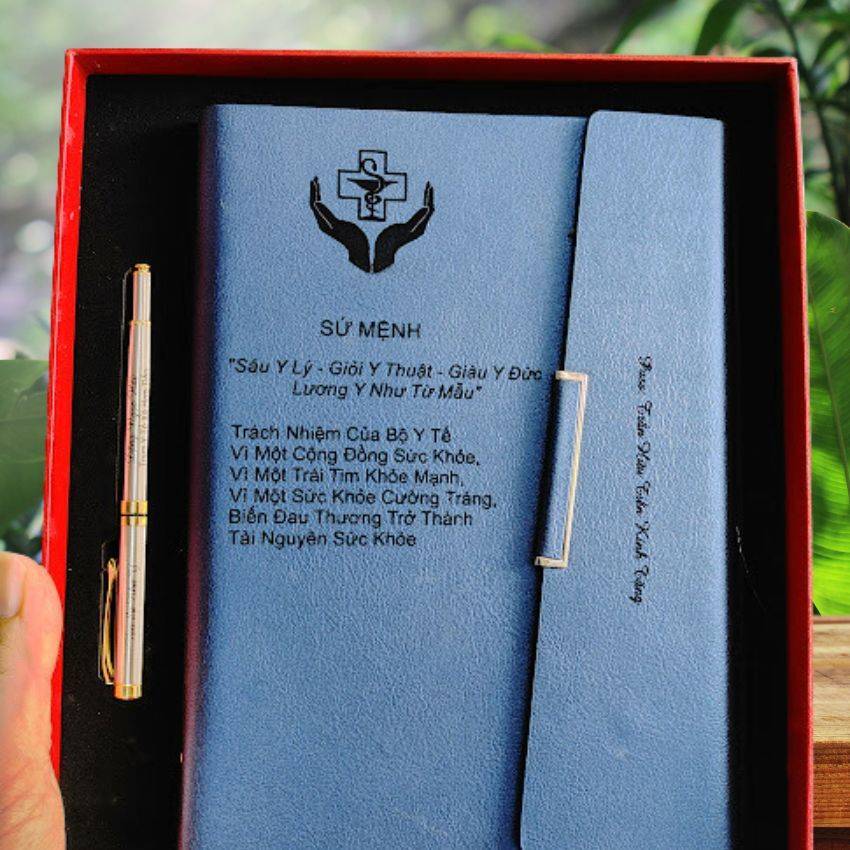 SỨ MỆNH
"Sâu Y Lý - Giỏi Y Thuật - Giàu Y Đức
Lương Y Như Từ Mẫu"
Trách Nhiệm Của Bộ Y Tế
Vì Một Cộng Đồng Sức Khỏe,
Vì Một Trái Tim Khỏe Mạnh,
Vì Một Sức Khỏe Cường Tráng,
Biến Đau Thương Trở Thành
Tài Nguyên Sức Khỏe
Trần Hữu Kính Tặng